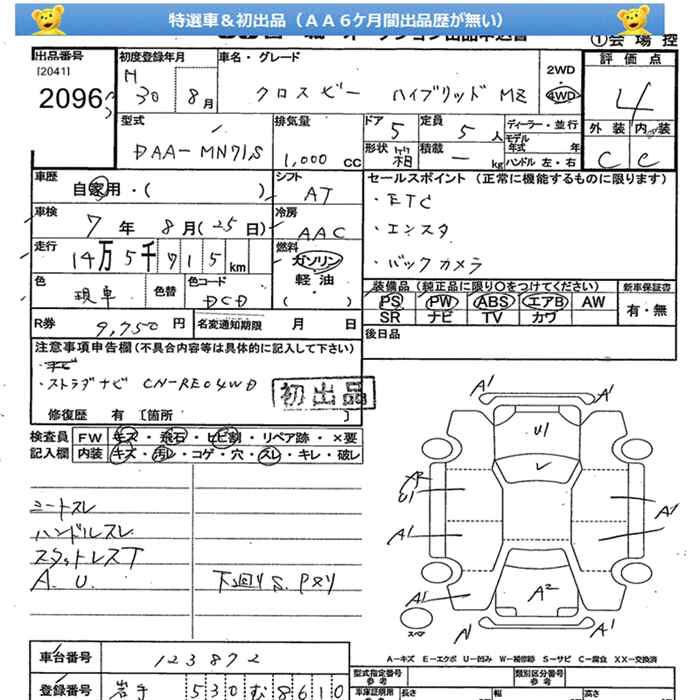 特選車＆初出品（ＡＡ６ケ月間出品歴が無い）
①会場控
出品番号
[2041]
2096
初度登録年月
H
30 8月
車名・グレード
クロスビー ハイブリッド MZ
2WD
・
4WD
評価点
4
外装 内装
C C
型式
DAA-MN71S
排気量
1,000 cc
ドア
5
定員
5人
形状
箱
積載
— kg
ディーラー・並行
モデル
年式 年
ハンドル 左・右
車歴
自家用・( )
シフト
AT
セールスポイント（正常に機能するものに限ります）
・ETC
・エンスタ
・バックカメラ
車検
7年 8月(25日)
冷房
AAC
走行
14万5千715km
燃料
ガソリン
軽油
・
( )
色
現車
色替
色コード
DCD
装備品（純正品に限り○をつけてください）
PS PW ABS エアB AW
SR ナビ TV カワ
新車保証書
有・無
R券
9,750円
名変通知期限 月 日
後日品
注意事項申告欄（不具合内容等は具体的に記入して下さい）
・ストラダナビ CN-RE04WD
初出品
修復歴 有 [箇所 ]
検査員
記入欄
FW キズ・飛石・ヒビ割・リペア跡・×要
内装 キズ・汚レ・コゲ・穴・スレ・キレ・破レ
シートスレ
ハンドルスレ
スタットレスT
A. U.
下廻りS. Pメリ
A1
A1
U1
XR
U1
A1
A1
A1
A1
A2
A1
A1
スペア
A－キズ E－エクボ U－凹み W－補修跡 S－サビ C－腐食 XX－交換済
車台番号
123872
登録番号
岩手 530 む 8610
型式指定番号
参考
類別区分番号
参考
車庫証明用
長さ
幅
高さ